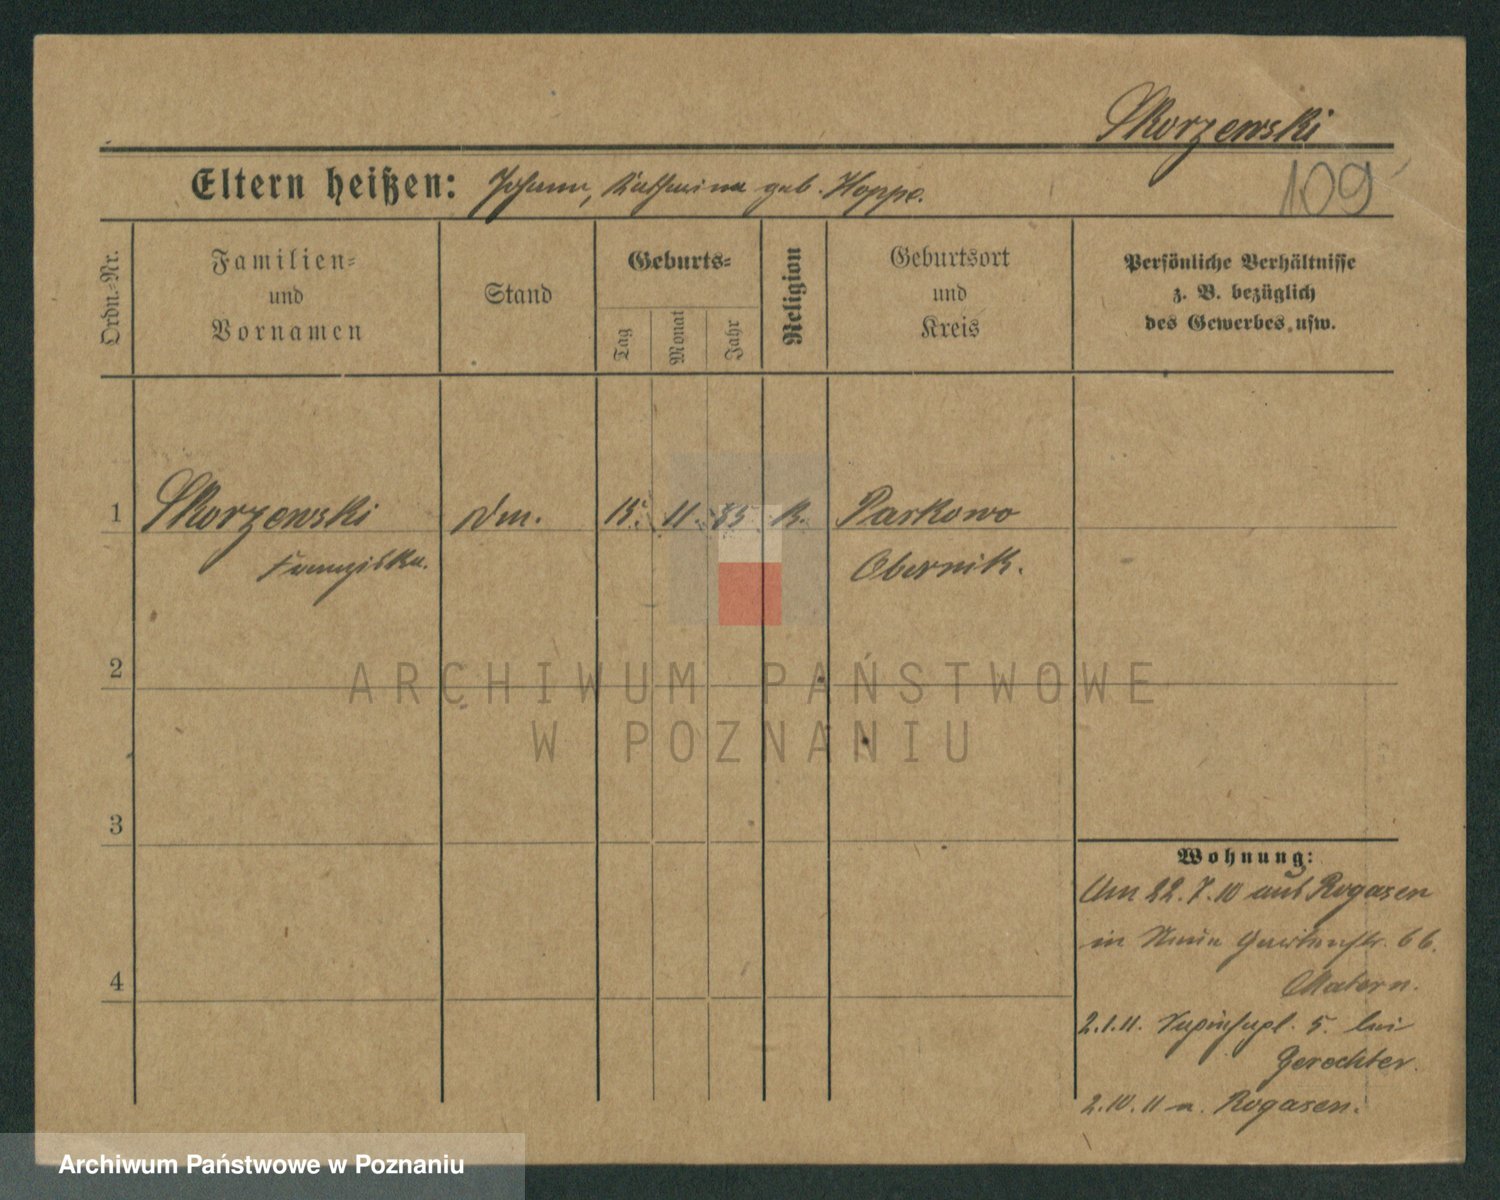 Skorzewski
Eltern heißen: Johann, Katharina geb. Hoppe.
109
Ordn.-Nr.
Familien-
und
Vornamen
Stand
Geburts-
Tag
Monat
Jahr
Religion
Geburtsort
und
Kreis
Persönliche Verhältnisse
z. B. bezüglich
des Gewerbes usw.
1 Skorzewski 15. 11. 85 K. Parkowo
Franziska. Obernik.
2
3
4
Wohnung:
Am 22.7.10 aus Rogasen
in Neue Gartenstr. 66.
Matern.
2.1.11. 5. bei
Gerechter.
2.10.11 n. Rogasen.
ARCHIWUM PAŃSTWOWE
W POZNANIU
Archiwum Państwowe w Poznaniu